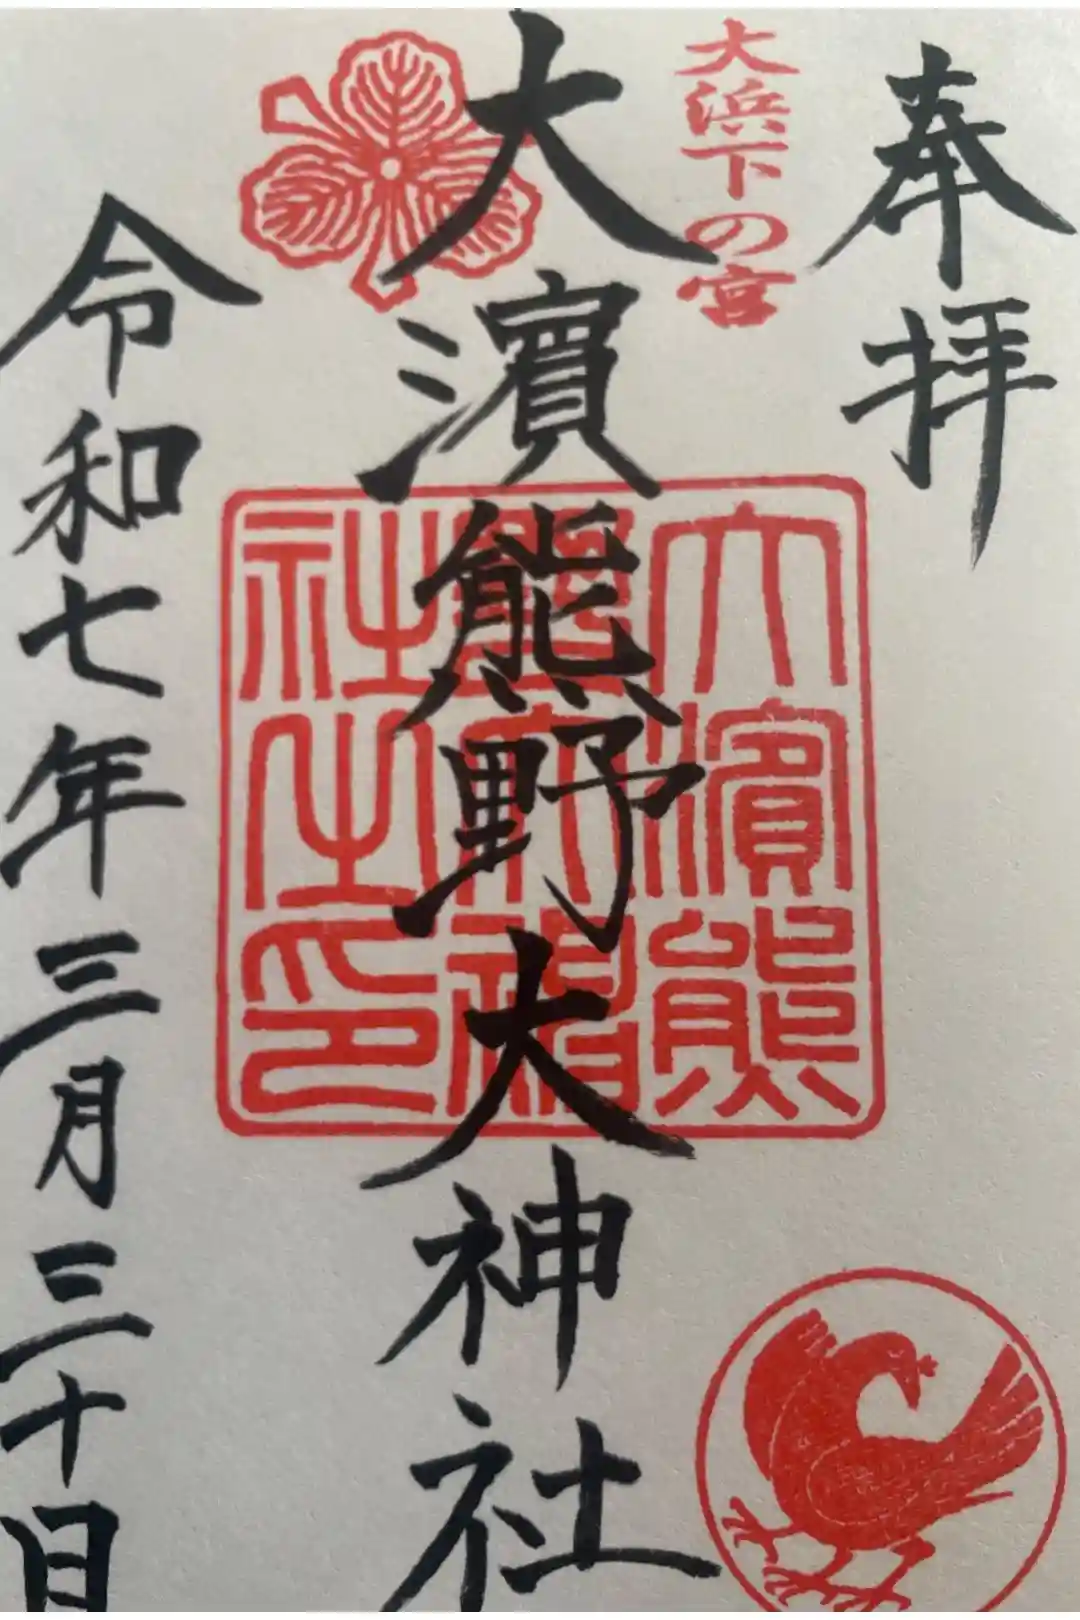 奉拝
大浜下の宮
大濱熊野大神社
大濱熊
野大神社
之印
令和七年三月三十日